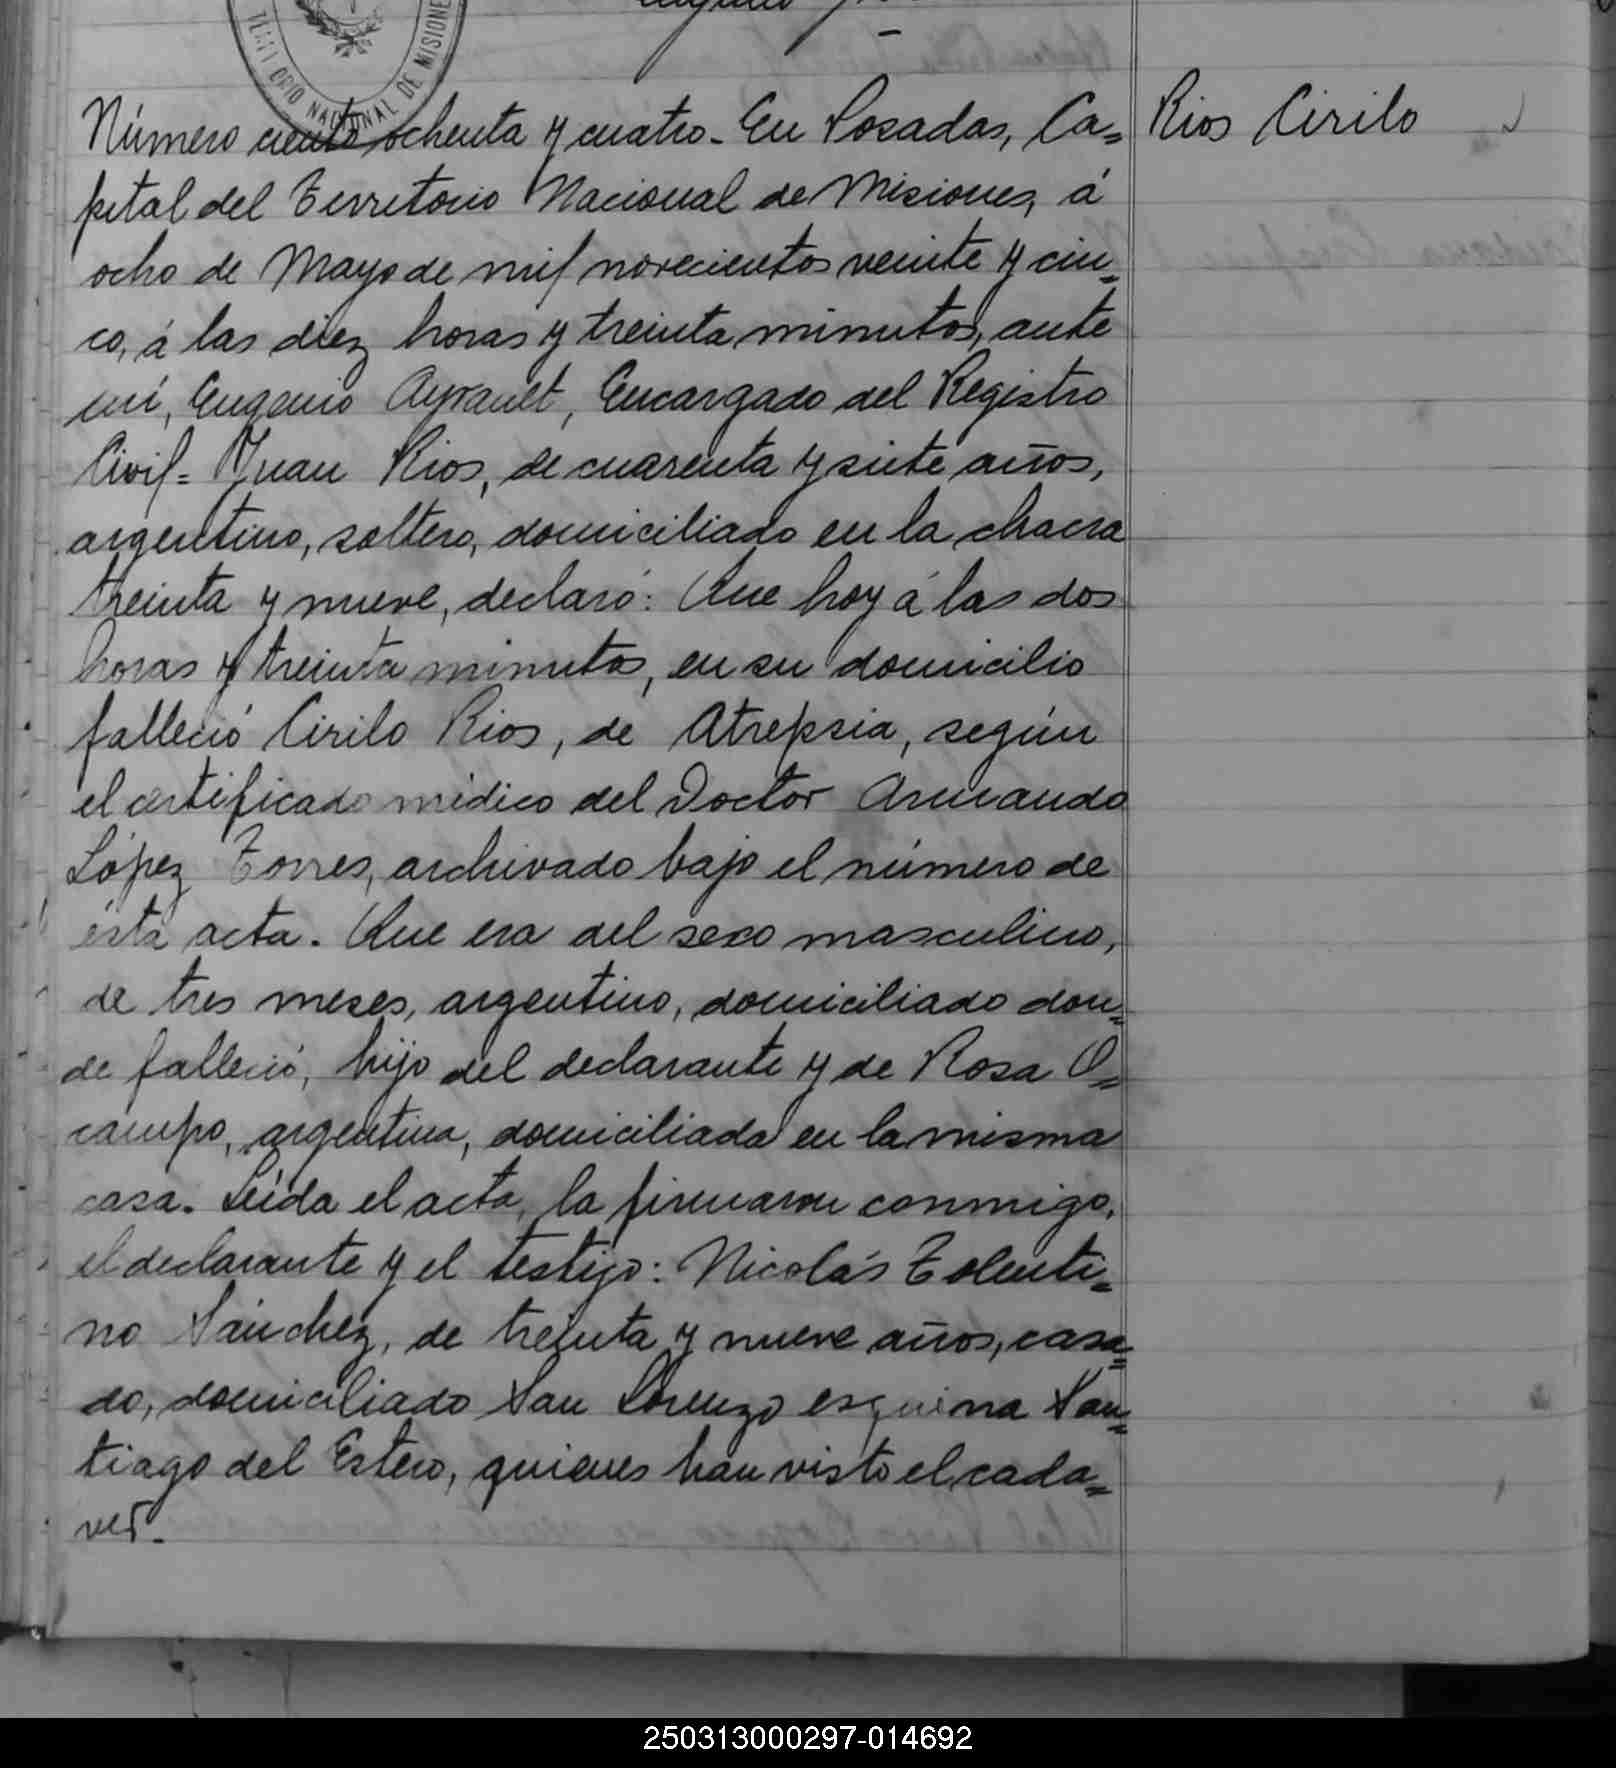 TERRITORIO NACIONAL DE MISIONES
Número ciento ochenta y cuatro - En Posadas, Ca=
pital del Territorio Nacional de Misiones, á
ocho de Mayo de mil novecientos veinte y cin=
co, á las diez horas y treinta minutos, ante
mí, Eugenio Ayrault, Encargado del Registro
Civil = Juan Rios, de cuarenta y siete años,
argentino, soltero, domiciliado en la chacra
treinta y nueve, declaró: Que hoy á las dos
horas y treinta minutos, en su domicilio
falleció Cirilo Rios, de Atrepsia, según
el certificado médico del Doctor Armando
López Torres, archivado bajo el número de
ésta acta. Que era del sexo masculino,
de tres meses, argentino, domiciliado don=
de falleció, hijo del declarante y de Rosa O=
campo, argentina, domiciliada en la misma
casa. Leída el acta, la firmaron conmigo,
el declarante y el testigo: Nicolás Tolenti=
no Sánchez, de treinta y nueve años, casa=
do, domiciliado San Lorenzo esquina San=
tiago del Estero, quienes han visto el cada=
ver.
Rios Cirilo
250313000297-014692